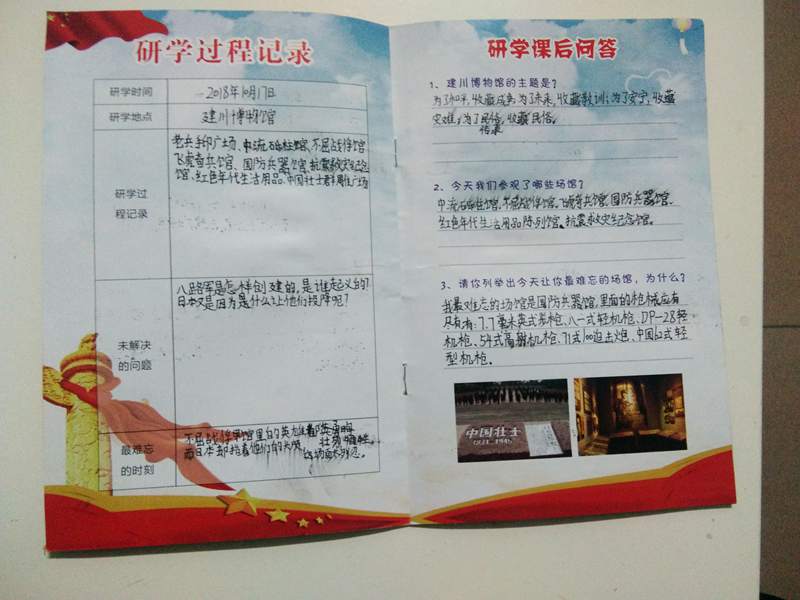 研学过程记录
研学时间
2018年10月17日
研学地点
建川博物馆
研学过
程记录
老兵手印广场、中流砥柱馆、不屈战俘馆
飞虎奇兵馆、国防兵器馆、抗震救灾纪念
馆、红色年代生活用品、中国壮士群雕广场
未解决
的问题
八路军是怎样创建的,是谁起义的?
日本又是因为是什么让他们投降呢?
最难忘
的时刻
不屈战俘馆里的英雄都英勇
而日本却指着他们的头
研学课后问答
1、建川博物馆的主题是?
为了和平,收藏战争;为了未来,收藏教训;为了安宁,收藏
灾难;为了传承,收藏民俗。
2、今天我们参观了哪些场馆?
中流砥柱馆、不屈战俘馆、飞虎奇兵馆、国防兵器馆、
红色年代生活用品陈列馆、抗震救灾纪念馆。
3、请你列举出今天让你最难忘的场馆,为什么?
我最难忘的场馆是国防兵器馆,里面的枪械应有
尽有有:7.7毫米英式步枪、八一式轻机枪、DP-28轻
机枪、54式高射机枪、71式100迫击炮、中国62式轻
型机枪。
中国壮士
1931-1945